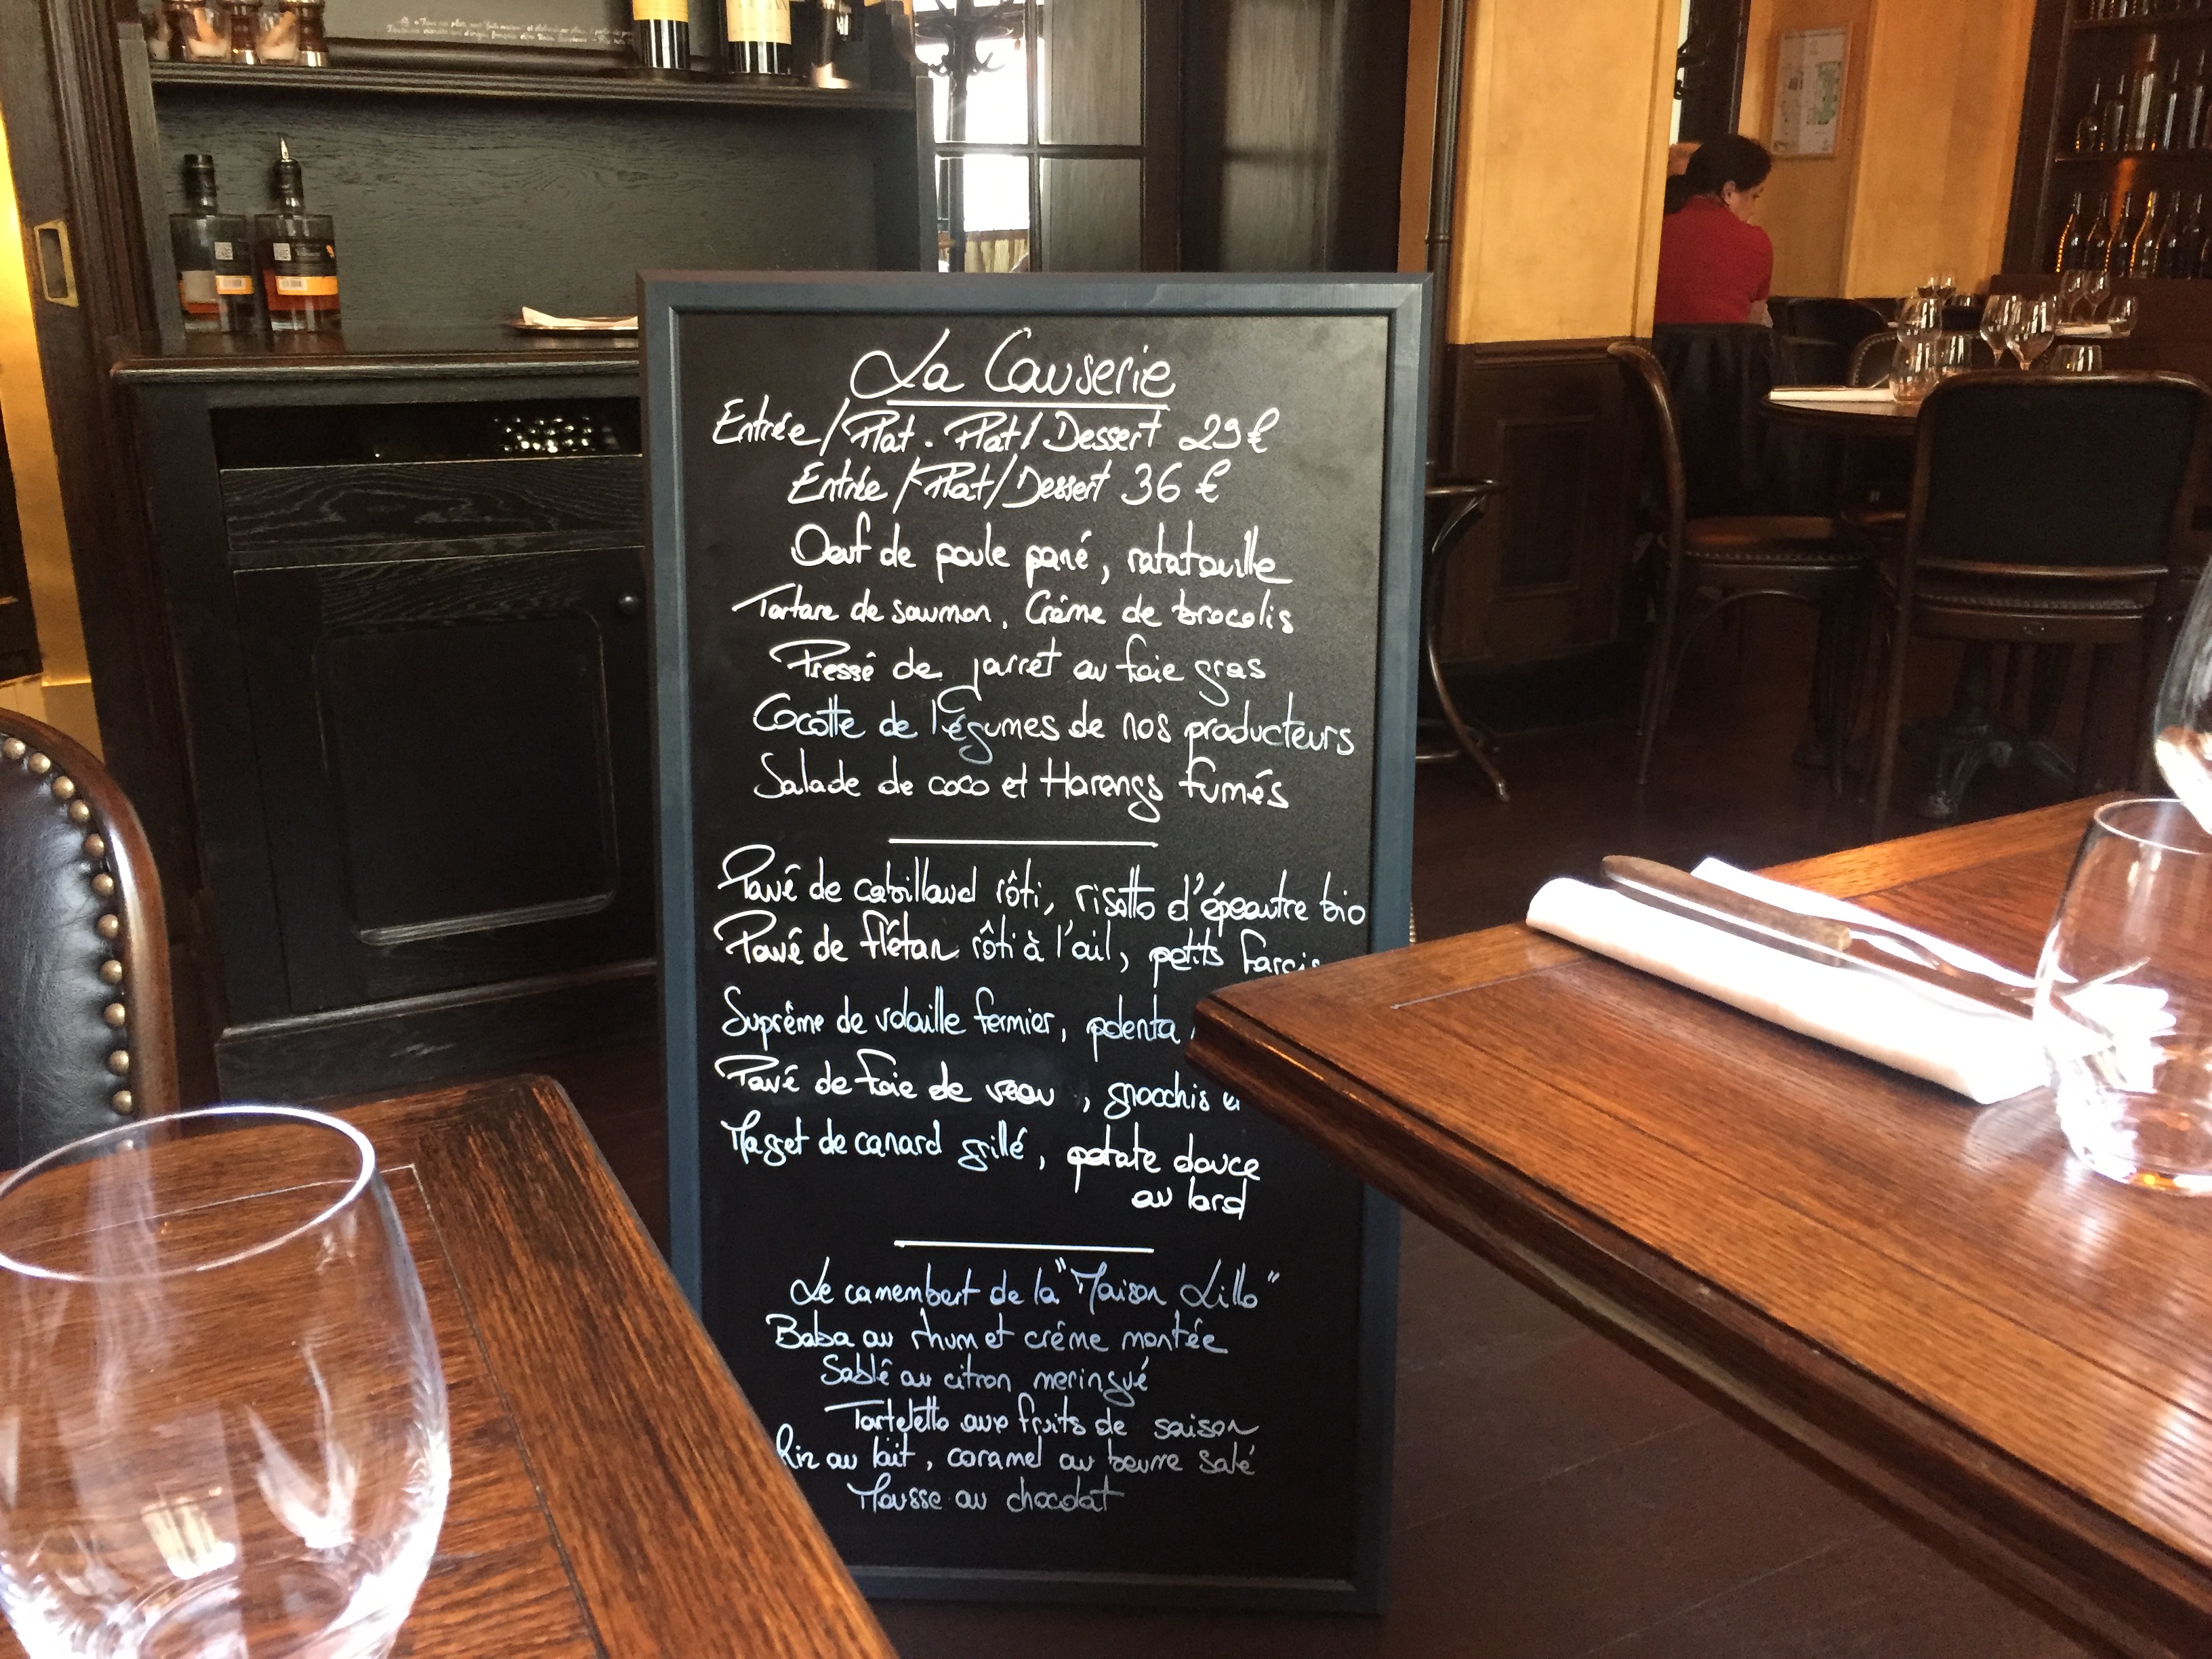 La Causerie
Entrée/Plat. Plat/Dessert 29€
Entrée/Plat/Dessert 36€
Oeuf de poule pané, ratatouille
Tartare de saumon, Crème de brocolis
Pressé de jarret au foie gras
Cocotte de légumes de nos producteurs
Salade de coco et Harengs fumés
Pavé de cabillaud rôti, risotto d'épeautre bio
Pavé de flétan rôti à l'ail, petits farcis
Suprême de volaille fermier, polenta
Pavé de foie de veau, gnocchis
Magret de canard grillé, patate douce
au lard
Le camembert de la "Maison Lillo"
Baba au rhum et crème montée
Sablé au citron meringué
Tartelette aux fruits de saison
Riz au lait, caramel au beurre salé
Mousse au chocolat